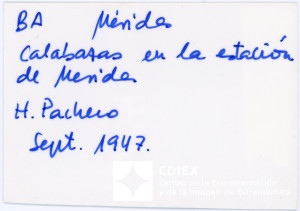 BA Mérida
Calabazas en la estación
de Merida
H. Pacheco
Sept. 1947.
CDIEX